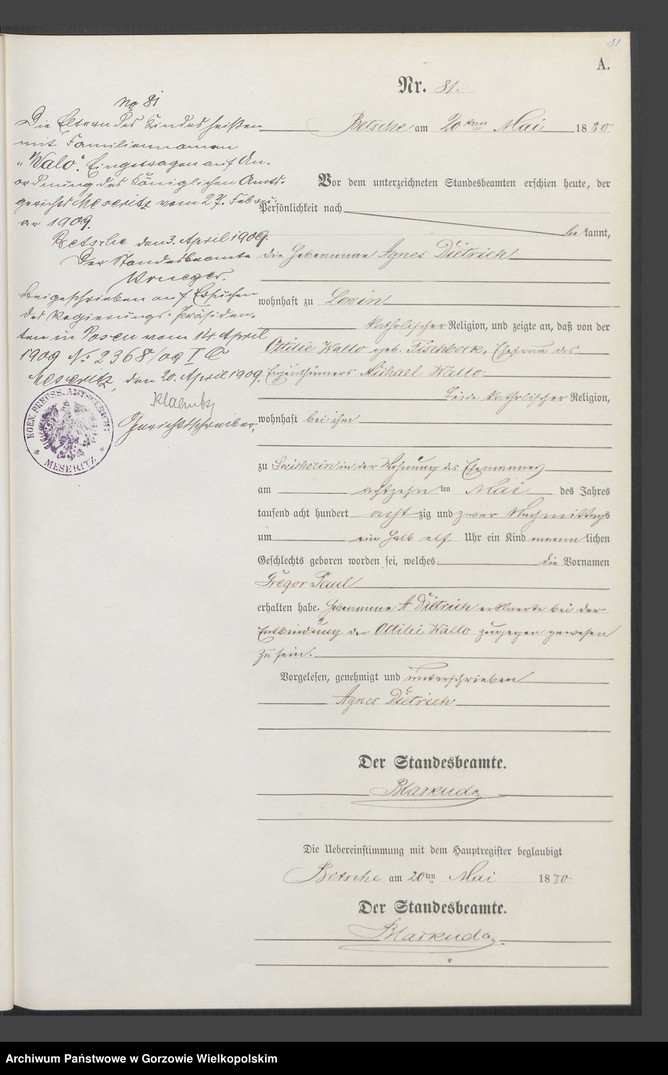 81
A.
Nr. 81.
No 81
Die Eltern des Kindes heißen
mit Familiennamen
„Walo“. Eingetragen auf An-
ordnung des Königlichen Amts-
gerichts Meseritz vom 27. Febru-
ar 1909.
Betsche den 3. April 1909.
Der Standesbeamte
Krueger.
Beigeschrieben auf Ersuchen
des Regierungs-Präsiden-
ten in Posen vom 14. April
1909 No 2368/09 I
Meseritz, den 20. April 1909.
Gerichtsschreiber.
KOEN. PREUSS. AMTSGERICHT
* MESERITZ *
Betsche am 20ten Mai 1880
Vor dem unterzeichneten Standesbeamten erschien heute, der
Persönlichkeit nach
be kannt,
die Hebeamme Agnes Dietrich
wohnhaft zu Lewin
katholischer Religion, und zeigte an, daß von der
Ottilie Wallo geb. Fischbock, Ehefrau des
Eigenthümers Michael Wallo
beide katholischer Religion,
wohnhaft bei ihm
zu in der Wohnung des Ehemannes
am achtzehn ten Mai des Jahres
tausend acht hundert acht zig und zwar Nachmittags
um ein halb elf Uhr ein Kind männ lichen
Geschlechts geboren worden sei, welches die Vornamen
Gregor Paul
erhalten habe. Hebeamme A Dietrich erklaerte bei der
Entbindung der Ottilie Wallo zugegen gewesen
zu sein.
Vorgelesen, genehmigt und unterschrieben
Agnes Dietrich
Der Standesbeamte.
Die Uebereinstimmung mit dem Hauptregister beglaubigt
Betsche am 20ten Mai 1880
Der Standesbeamte.
Archiwum Państwowe w Gorzowie Wielkopolskim